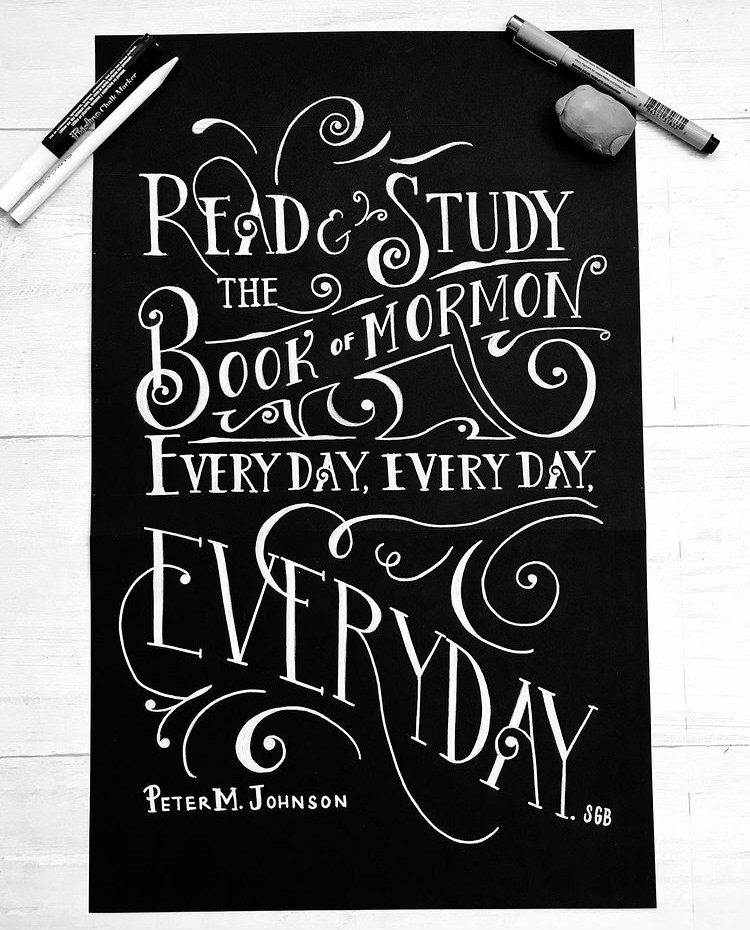 READ & STUDY
THE
BOOK OF MORMON
EVERY DAY, EVERY DAY,
EVERYDAY.
SGB
PETER M. JOHNSON
Chalk Marker